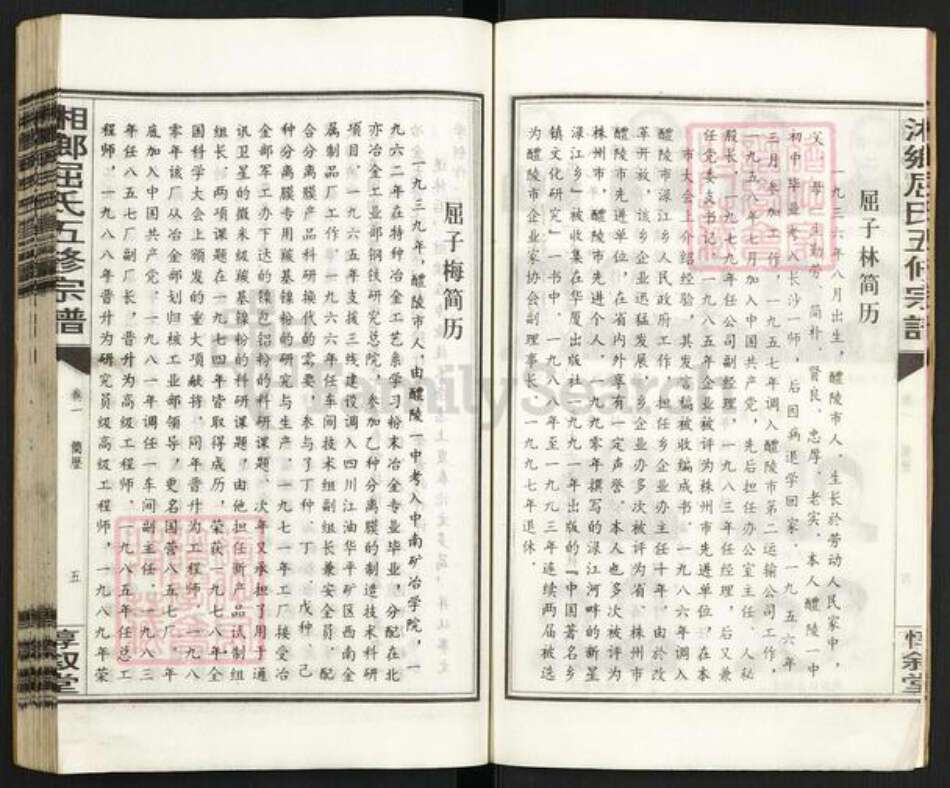 屈子林简历
一九三六年八月出生，醴陵市人。生长於劳动人民家中，
父母一生勤劳、简朴、贤良、忠厚、老实。本人醴陵一中
初中毕业考入长沙一师，后因病退学回家。一九五六年
三月参加工作，一九五七年调入醴陵市第二运输公司工作，
一九五八年七月加入中国共产党，先后担任办公室主任、人秘
股长，一九七九年任公司副经理，一九八三年任经理，后又兼
任党委支书记。一九八五年企业被评为株州市先进单位，在本
市大会上介绍经验，其发言稿被收编成书。一九八六年调入
醴陵市渌江乡人民政府工作，担任乡企业办主任十年。由於改
革开放，该乡企业迅猛发展，乡企业办多次被评为省、株州市
醴陵市先进单位，在省内外享有一定声誉。本人也多次被评为
株州市，醴陵市先进个人，一九九零年撰写的渌江河畔的新星
渌江乡"被收集在华厦出版社一九九一年出版的"中国著名乡
镇文化研究"一书中，一九八八年至一九九三年连续两届被选
为醴陵市企业家协会副理事长。一九九七年退休。
湘鄉屈氏五修宗譜
惇叙堂
屈子梅简历
一九三九年，醴陵市人，由醴陵一中考入中南矿冶学院，一
九六二年在特种冶金工艺系学习粉末冶金专业毕业，分配在北
亦冶金工业部钢铁研究总院，参加乙种分离膜的制造技术科研
项目。一九六五年支拨三线建设调入四川江油华平矿区西南金
属制品厂工作。一九六六年任车间技术组副组长兼安全员。配
合分离膜产品科研换代的需要，参与了丁种、丁一、戊种、己
种分离膜专用羰基镍粉的研究与生产。一九七一年工厂接受冶
金部军工办下达的镍包铝粉的科研课题。次年又承担了用于通
讯卫星的微米级羰基镍粉的科研课题，由他担任新产品试制组
组长。两项课题在一九七四年皆取得成历，荣获一九七八年全
国科学大会上颁发的重大项献将。同年晋升为工程师。一九八
零年该厂从冶金部划归核工业部领导，更名国营八五七厂。年
底加入中国共产党。一九八一年调任一车间副主任。一九八三
年任八五七厂副厂长，晋升为高级工程师。一九八五年任总工
程师，一九八八年晋升为研究员级高级工程师，一九八九年荣
湘鄉屈氏五修宗譜
卷一
簡歷
五
惇叙堂
FamilySearch